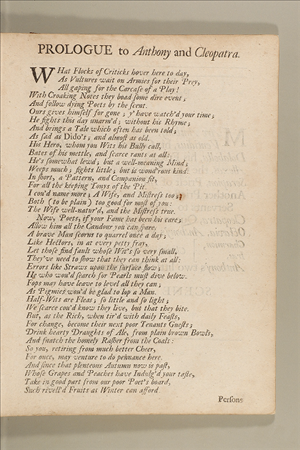 PROLOGUE to Anthony and Cleopatra.
WHat Flocks of Criticks hover here to day,
As Vultures wait on Armies for their Prey,
All gaping for the Carcass of a Play!
With Croaking Notes they boad some dire event;
And follow dying Poets by the scent.
Ours gives himself for gone; y' have watch'd your time;
He fights this day unarm'd; without his Rhyme;
And brings a Tale which often has been told;
As sad as Dido's; and almost as old.
His Hero, whom you Wits his Bully call,
Bates of his mettle, and scarce rants at all:
He's somewhat lewd; but a well-meaning Mind;
Weeps much; fights little; but is wond'rous kind.
In short, a Pattern, and Companion fit,
For all the keeping Tonyes of the Pit.
I cou'd name more; A Wife, and Mistress too;
Both (to be plain) too good for most of you:
The Wife well-natur'd, and the Mistress true.
Now, Poets, if your Fame has been his care;
Allow him all the Candour you can spare.
A brave Man scorns to quarrel once a day;
Like Hectors, in at every petty fray.
Let those find fault whose Wit's so very small,
They've need to show that they can think at all:
Errors like Straws upon the surface flow;
He who wou'd search for Pearls must dive below.
Fops may have leave to level all they can;
As Pigmies wou'd be glad to lop a Man.
Half-Wits are Fleas; so little and so light;
We scarce cou'd know they live, but that they bite.
But, as the Rich, when tir'd with daily Feasts,
For change, become their next poor Tenants Guests;
Drink hearty Draughts of Ale, from plain brown Bowls,
And snatch the homely Rasher from the Coals:
So you, retiring from much better Cheer,
For once, may venture to do pennance here.
And since that plenteous Autumn now is past,
Whose Grapes and Peaches have Indulg'd your taste,
Take in good part from our poor Poet's board,
Such rivell'd Fruits as Winter can afford.
Persons